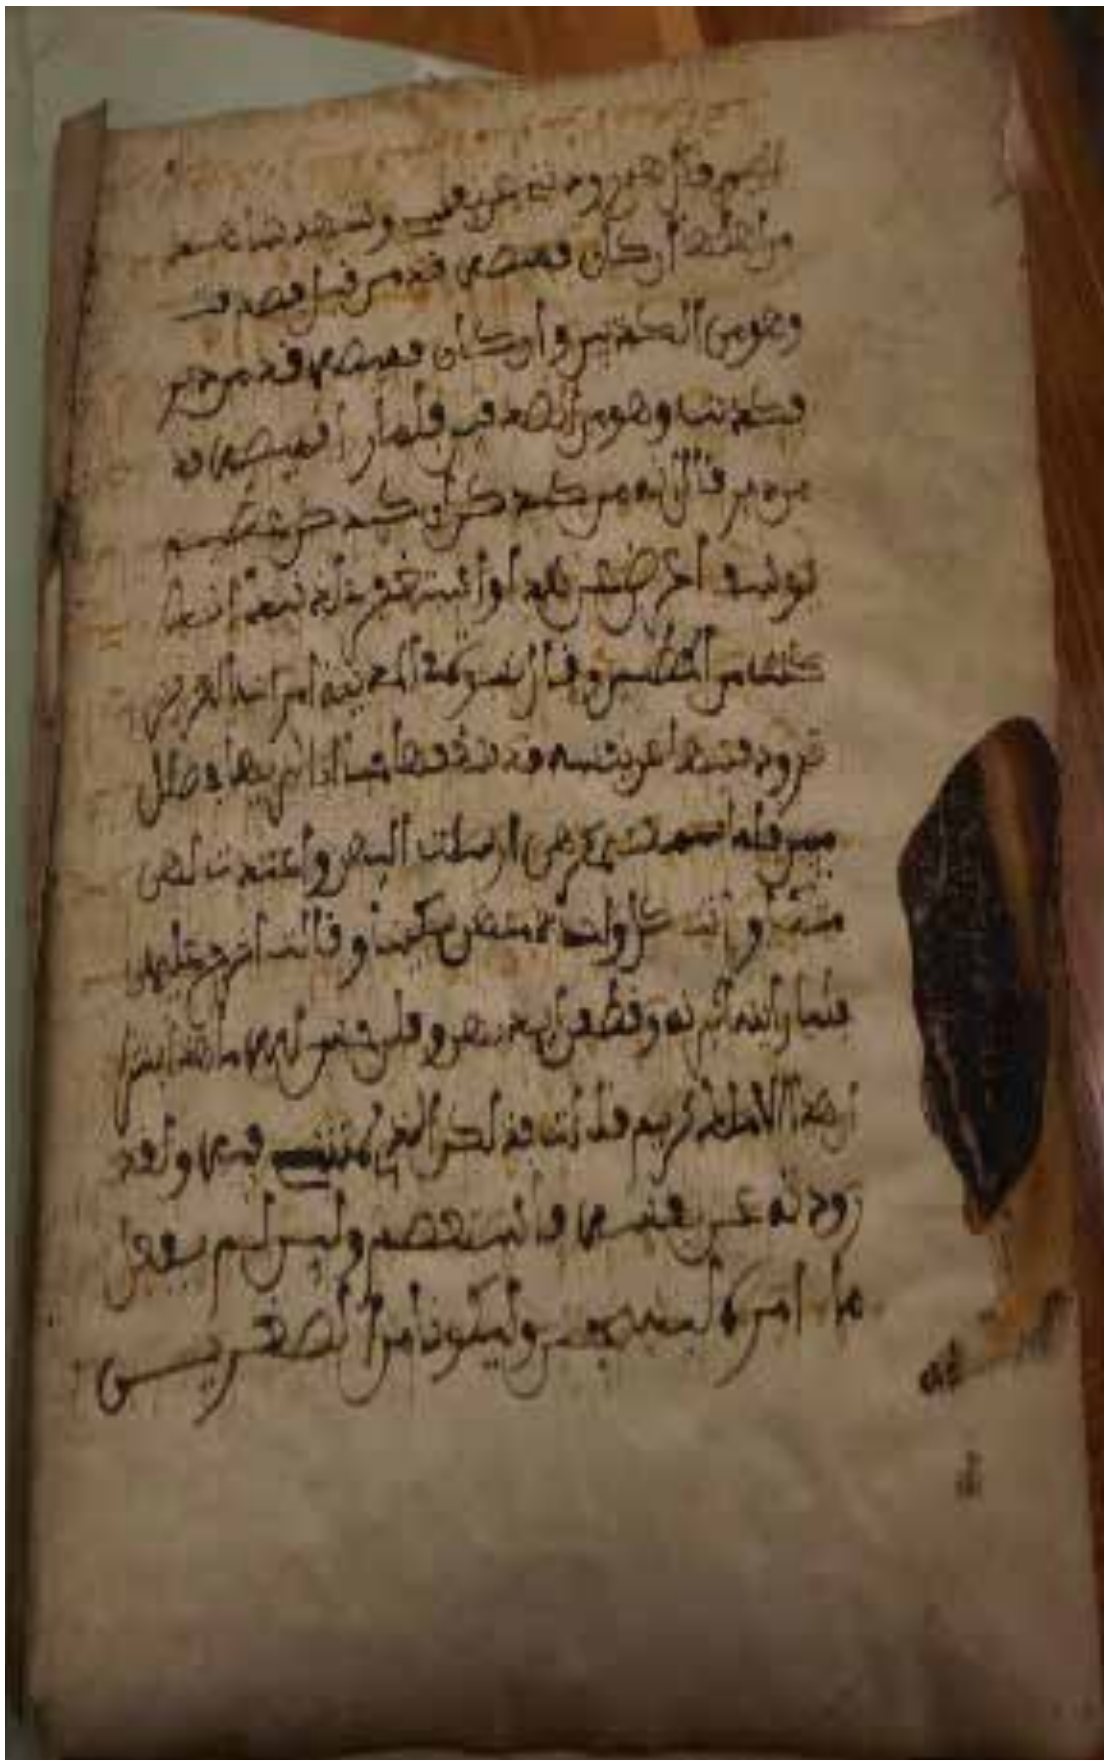 اليم قال هي رودتني عن نفسي وشهد شاهد
من اهلها ان كان قميصه قد من قبل فصدقت
وهو من الكذبين وان كان قميصه قد من دبر
فكذبت وهو من الصدقين فلما را قميصه قد
من دبر قال انه من كيدكن ان كيدكن عظيم
يوسف اعرض عن هذا واستغفري لذنبك انك
كنت من الخطين وقال نسوة في المدينة امرات العزيز
ترود فتيها عن نفسه قد شغفها حبا انا لنريها في ضلل
مبين فلما سمعت بمكرهن ارسلت اليهن واعتدت لهن
متكا واتت كل وحدة منهن سكينا وقالت اخرج عليهن
فلما راينه اكبرنه وقطعن ايديهن وقلن حش لله ما هذا بشرا
ان هذا الا ملك كريم قالت فذلكن الذي لمتنني فيه ولقد
رودته عن نفسه فاستعصم ولين لم يفعل
ما امره ليسجنن وليكونا من الصغرين